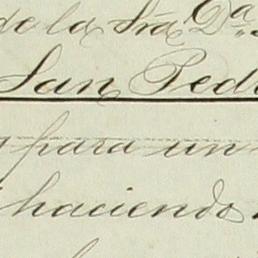 de la Sra. Da.
San Ped
para un
haciendo